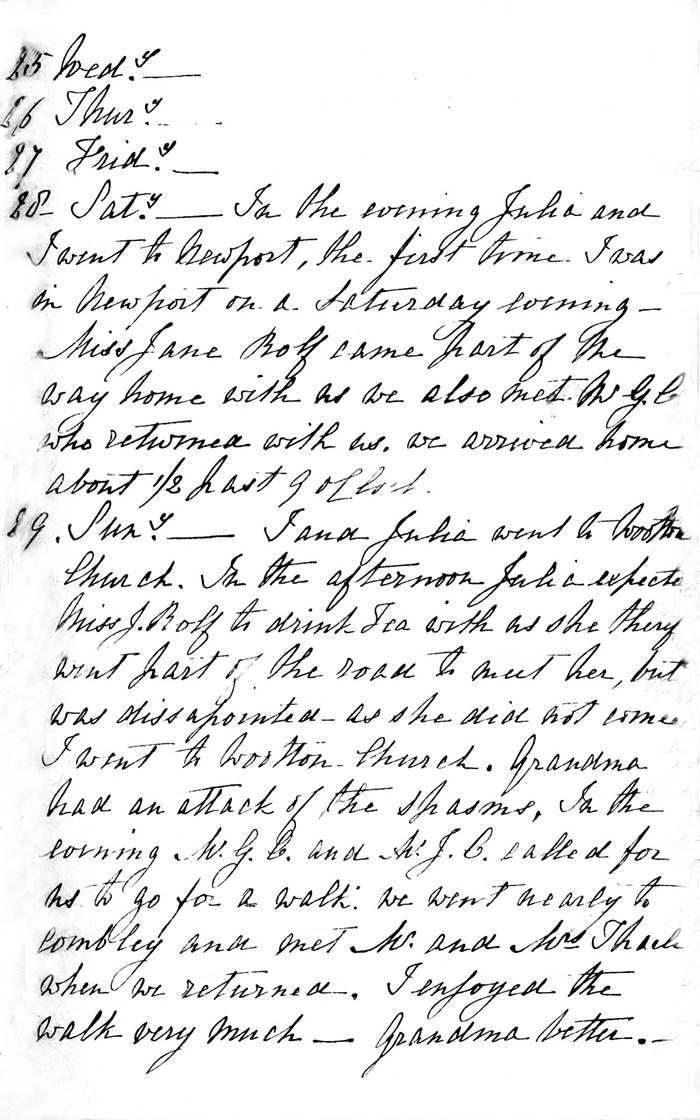 25 Wed.y —
26 Thur.y
27 Frid.y —
28 Sat.y — In the evening Julia and
I went to Newport, the first time I was
in Newport on a Saturday evening —
Miss Jane Rolf came part of the
way home with us we also met Mr G. C
who returned with us. we arrived home
about 1/2 past 9 oClock.
29. Sun.y — I and Julia went to Wootton
Church. In the afternoon Julia expecte
Miss J. Rolf to drink Tea with us she
went part of the road to meet her, but
was dissapointed - as she did not come
I went to Wootton Church. Grandma
had an attack of the spasms, In the
evening Mr. G. C. and Mr J. C. called for
us to go for a walk. we went nearly to
Combley and met Mr. and Mrs
when we returned. I enjoyed the
walk very much — Grandma better. —